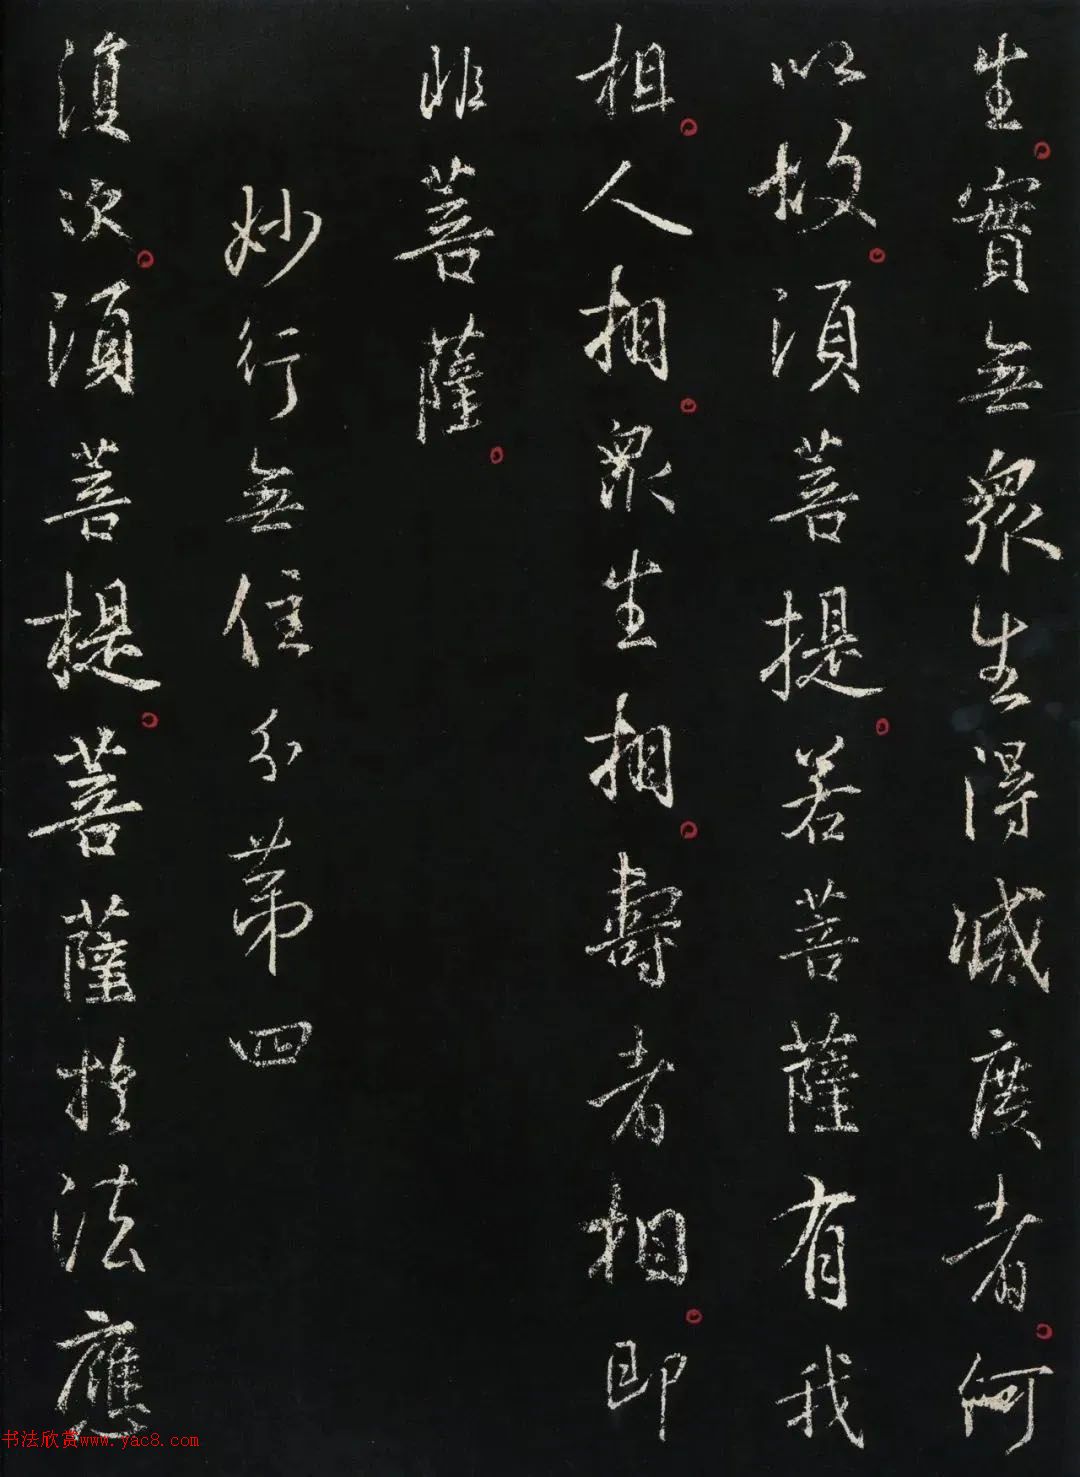 生。實無眾生得滅度者。何
以故。須菩提。若菩薩有我
相。人相。眾生相。壽者相。即
非菩薩。
妙行無住分第四
復次。須菩提。菩薩於法應
书法欣赏www.yac8.com